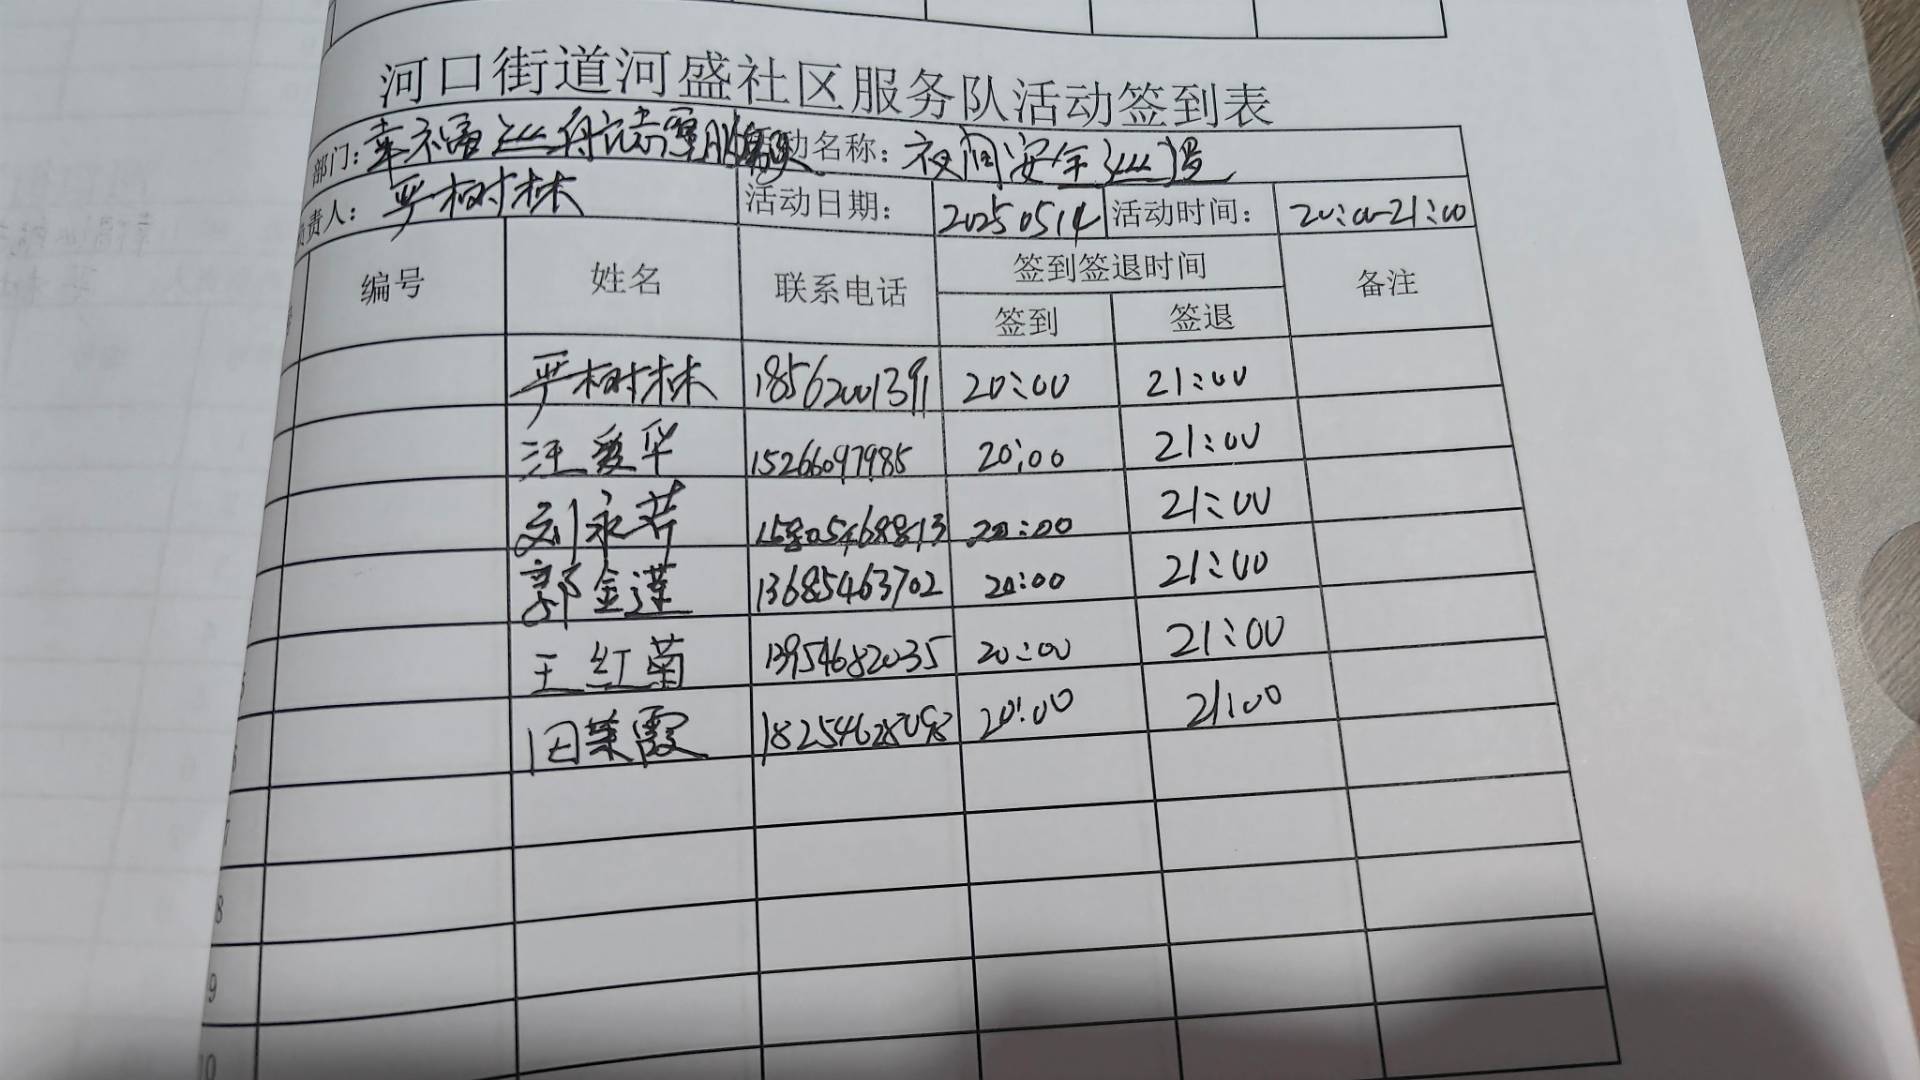 河口街道河盛社区服务队活动签到表
部门: 幸福 志愿服务队 活动名称: 夜间安全巡逻
负责人: 严树林 活动日期: 20250514 活动时间: 20:00-21:00
编号 姓名 联系电话 签到签退时间 备注
签到 签退
严树林 18562001391 20:00 21:00
汪爱华 15266097985 20:00 21:00
刘永芹 15805468813 20:00 21:00
郭金莲 13685463702 20:00 21:00
5 王红菊 13954682035 20:00 21:00
6 田荣霞 20:00 21:00
7
8
9
10